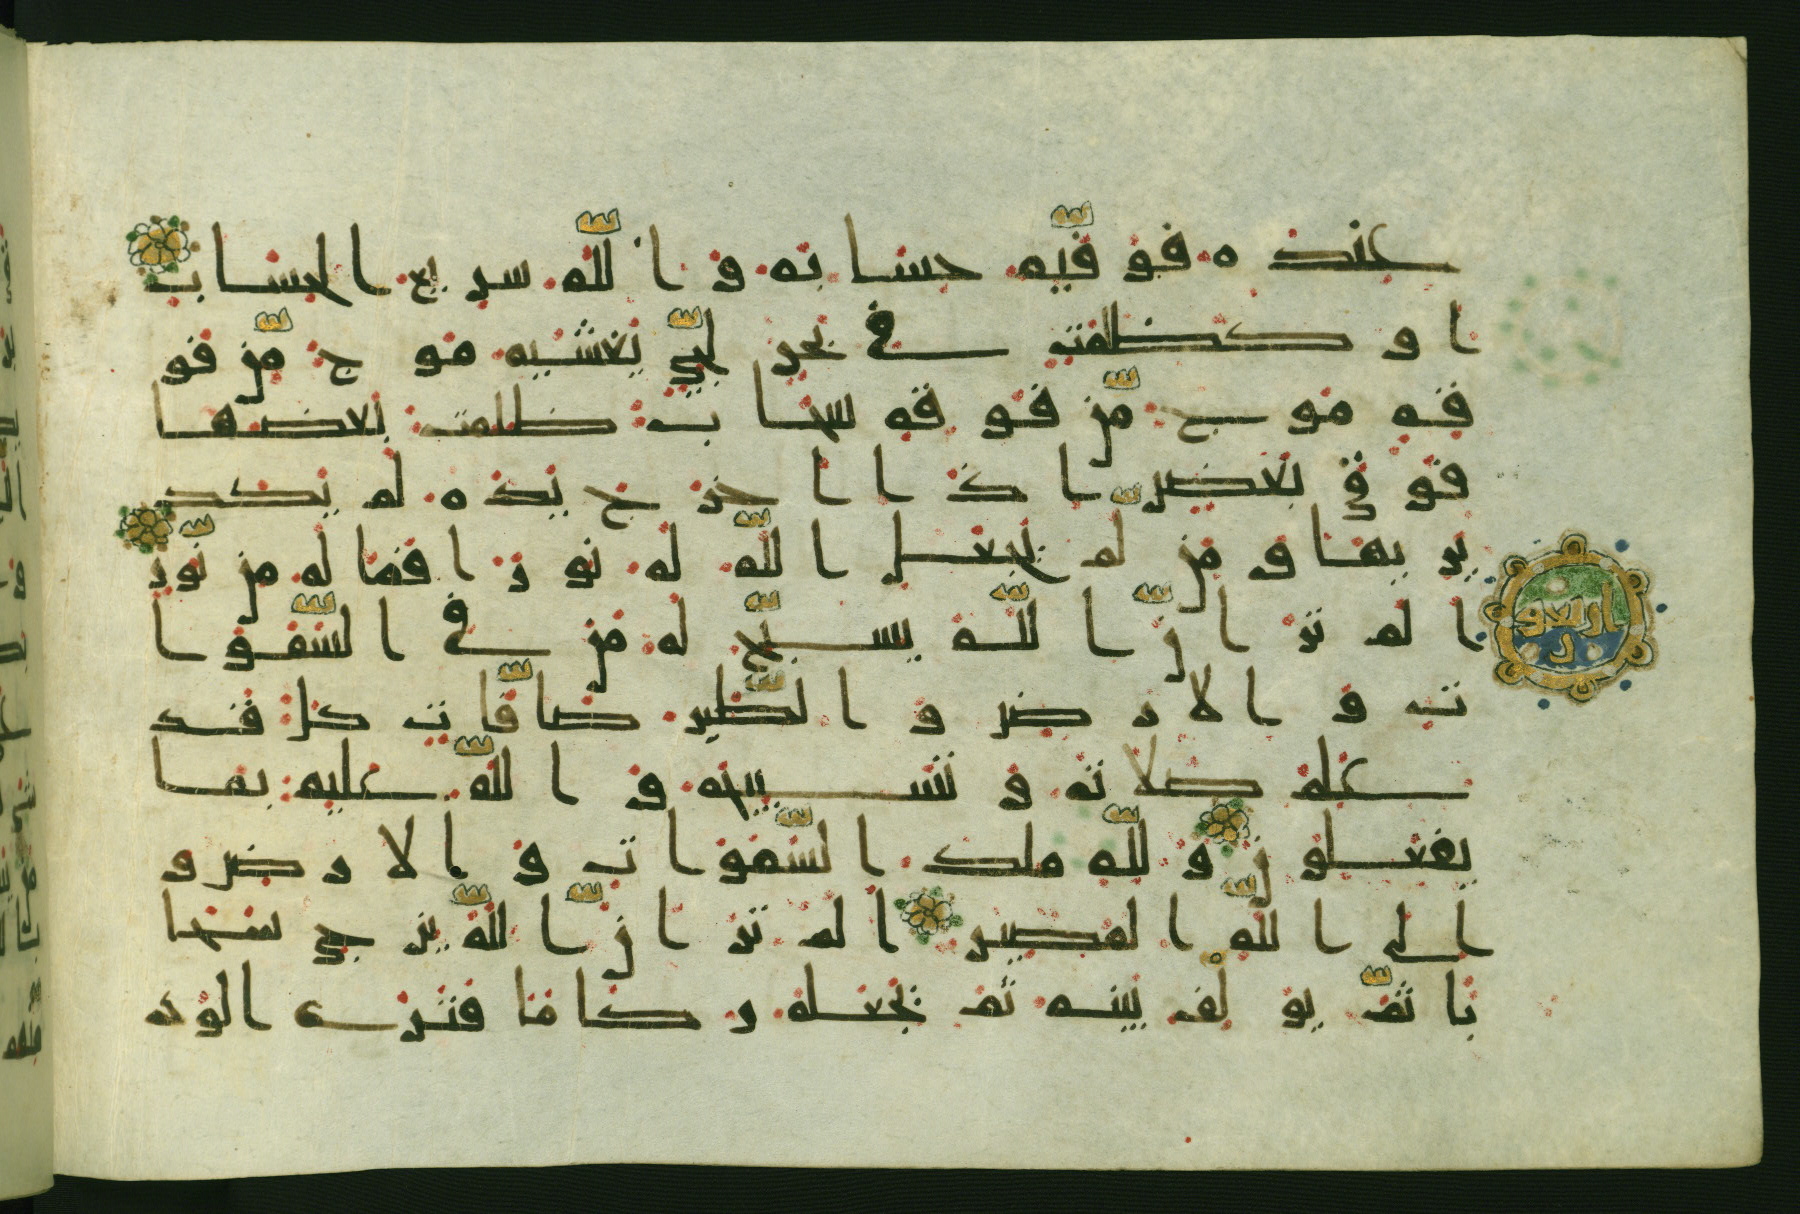 عنده فوفّيه حسابه و اللّه سريع الحساب
او كظلمت في بحر لجّي يغشيه موج مّن فو
قه موج مّن فوقه سحاب ظلمت بعضها
فوق بعض اذا اخرج يده لم يكد
يريها ومن لّم يجعل اللّه له نورا فما له من نّور
الم تر انّ اللّه يسبّح له من في السّموا
ت والارض والطّير صافّات كل قد
علم صلاته وتسبيحه واللّه عليم بما
يفعلون وللّه ملك السّموات والارض و
الى اللّه المصير الم تر انّ اللّه يزجي سحا
با ثمّ يولف بينه ثم يجعله ركاما فترى الود
اربعو
ن